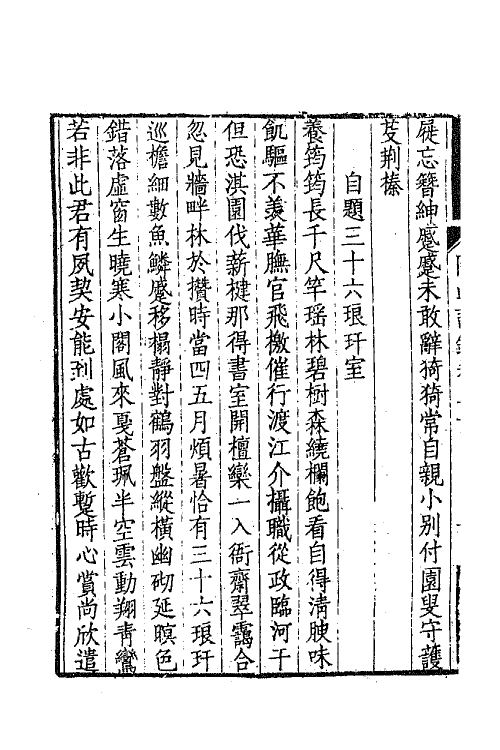 屣忘簪紳蹙蹙未敢辭猗猗常自親小別付園叟守護
芟荆榛
自題三十六琅玕室
養筠筠長千尺竿瑶林碧樹森繞欄飽看自得淸腴味
飢驅不羡華膴官飛檄催行渡江介攝職從政臨河干
但恐淇園伐薪楗那得書室開檀欒一入衙齋翠靄合
忽見牆畔林於攢時當四五月煩暑恰有三十六琅玕
巡檐細數魚鱗蹙移榻靜對鶴羽盤縱橫幽砌延暝色
錯落虛窗生曉寒小閣風來戛蒼珮半空雲動翔靑鸞
若非此君有夙契安能到處如古歡蹔時心賞尚欣遣